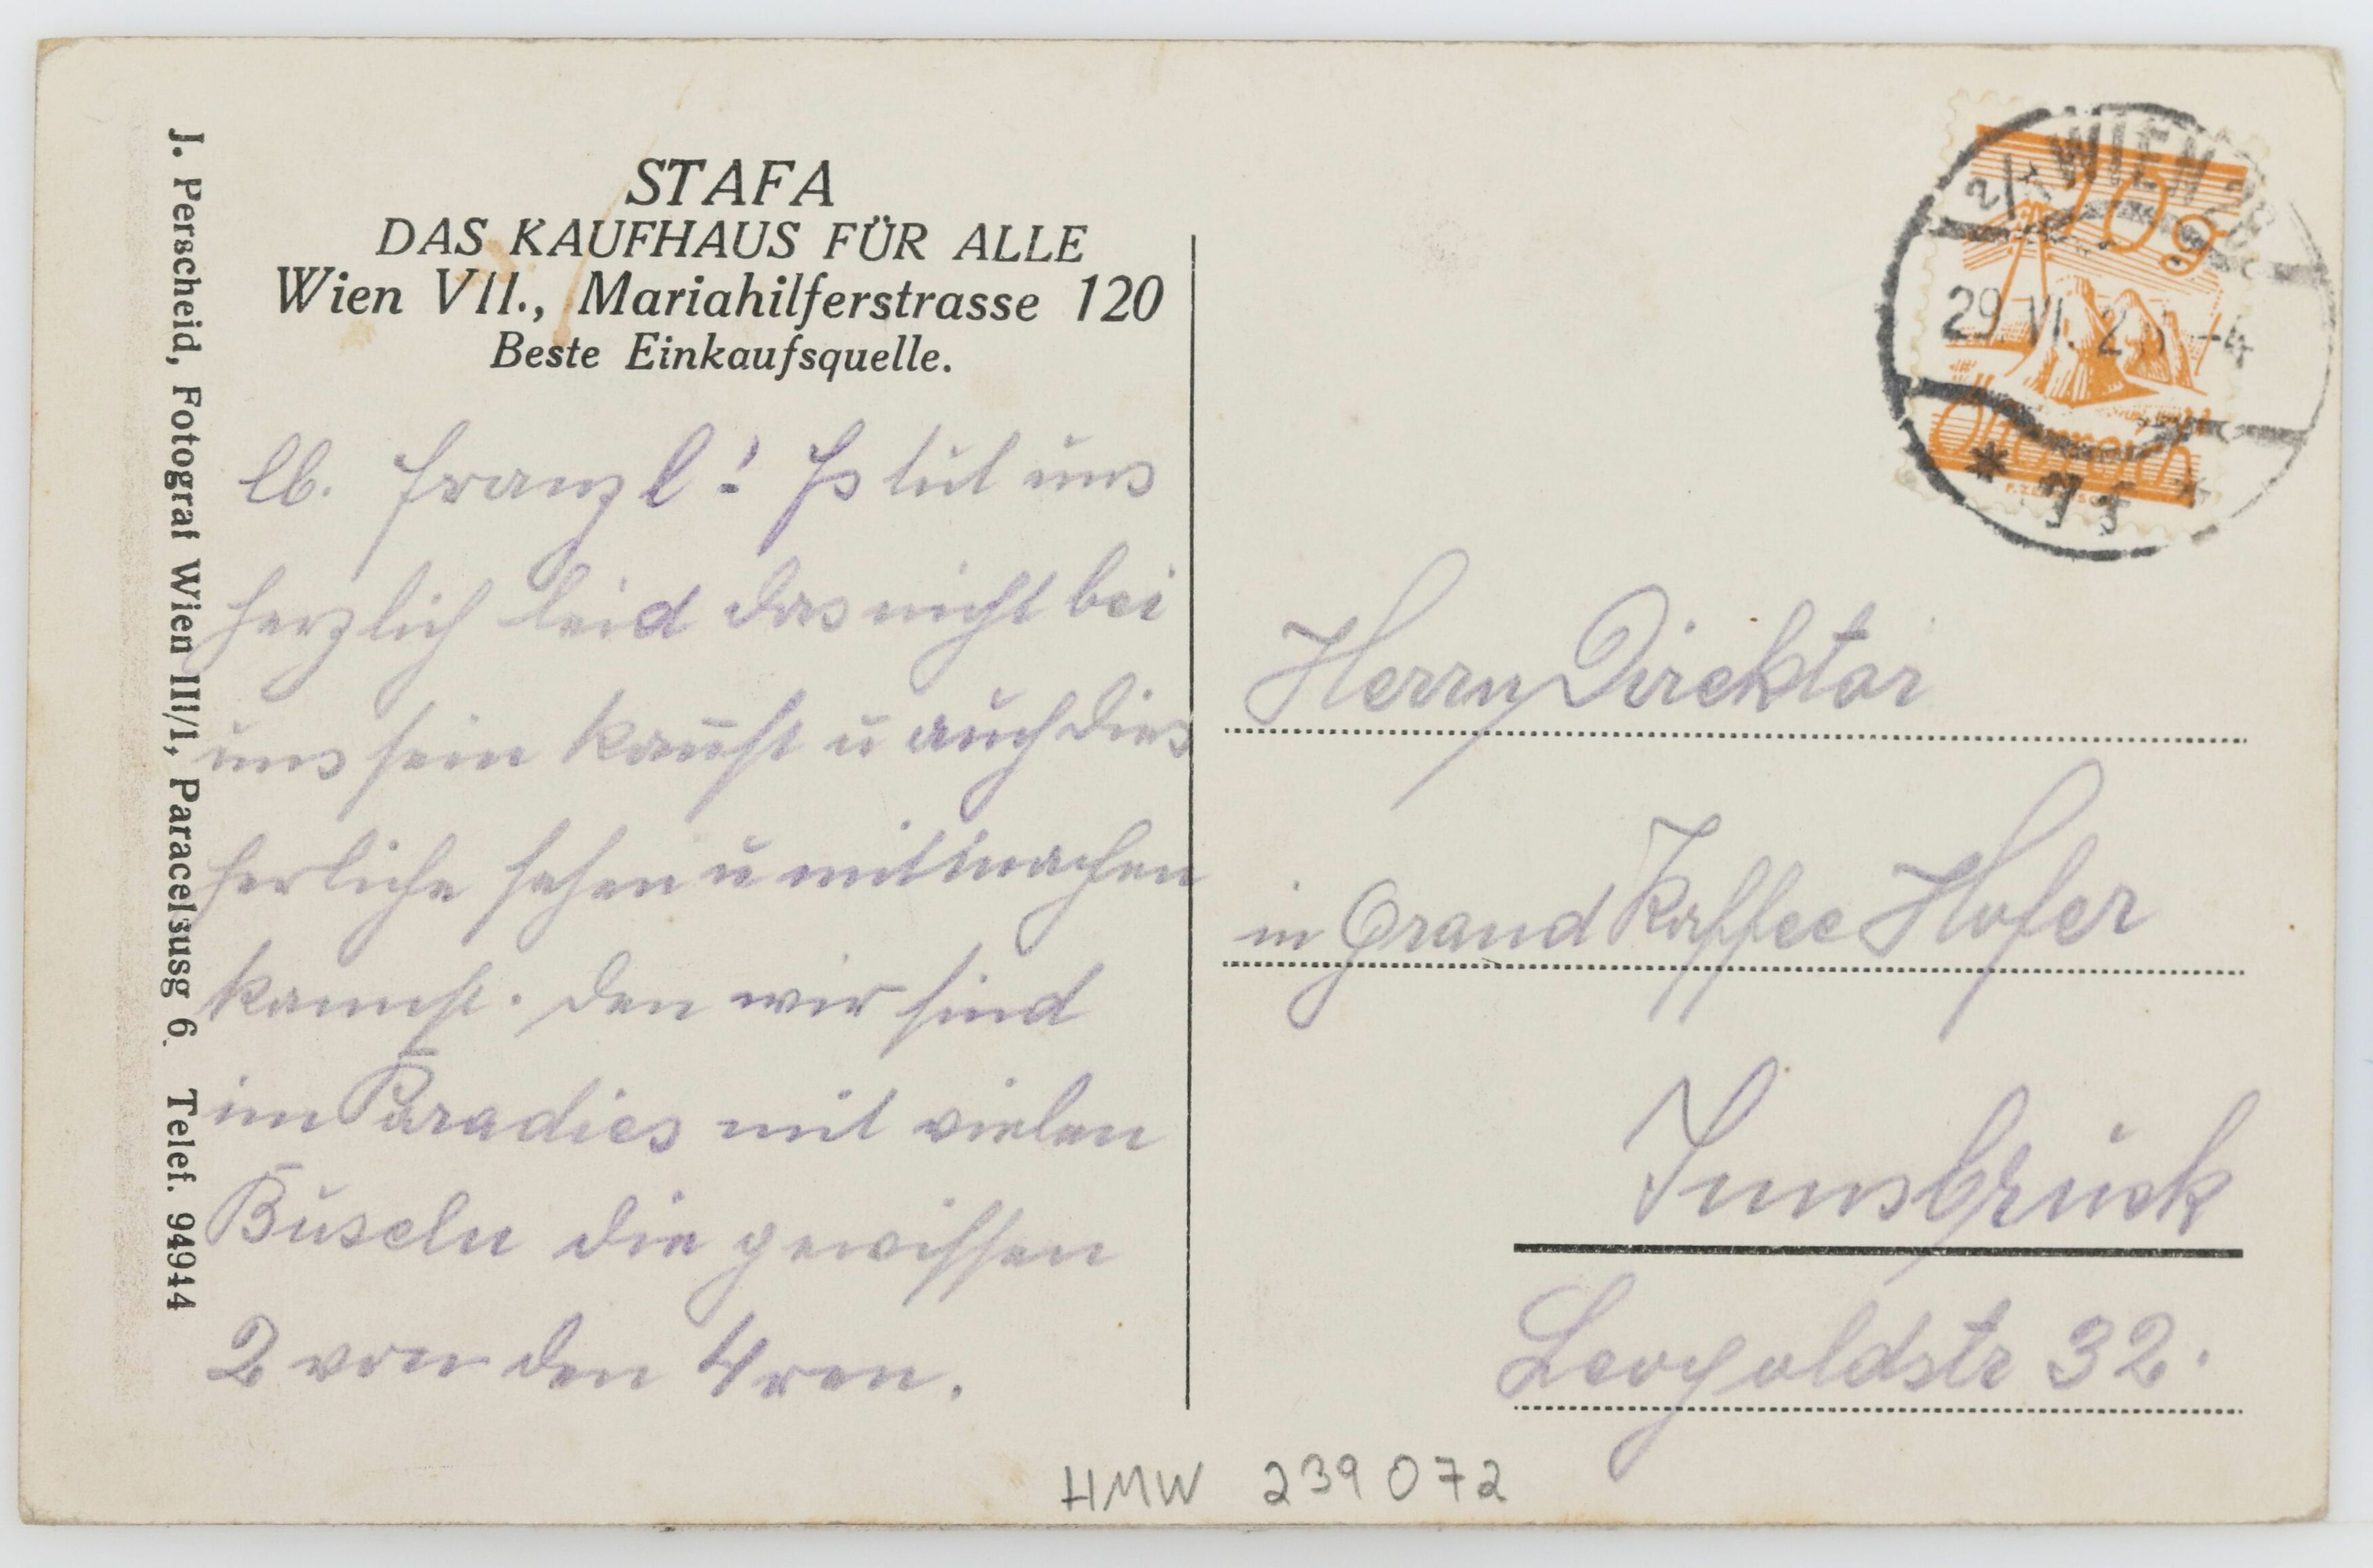 STAFA
DAS KAUFHAUS FÜR ALLE
Wien VII., Mariahilferstrasse 120
Beste Einkaufsquelle.
lb. Franzl! Es tut uns
herzlich leid das nicht bei
uns sein kannst u auch dies
herliche sehen u mitmachen
kannst. den wir sind
im Paradies mit vielen
Buseln die gewissen
2 von den 4ren.
J. Perscheid, Fotograf Wien III/1, Paracelsusg 6. Telef. 94944
WIEN
29. VI. 2 -4
* 7f *
10 g
Österreich
Herrn Direktor
in Grand Kaffee Hofer
Innsbruck
Leopoldstr 32.
HMW 239072